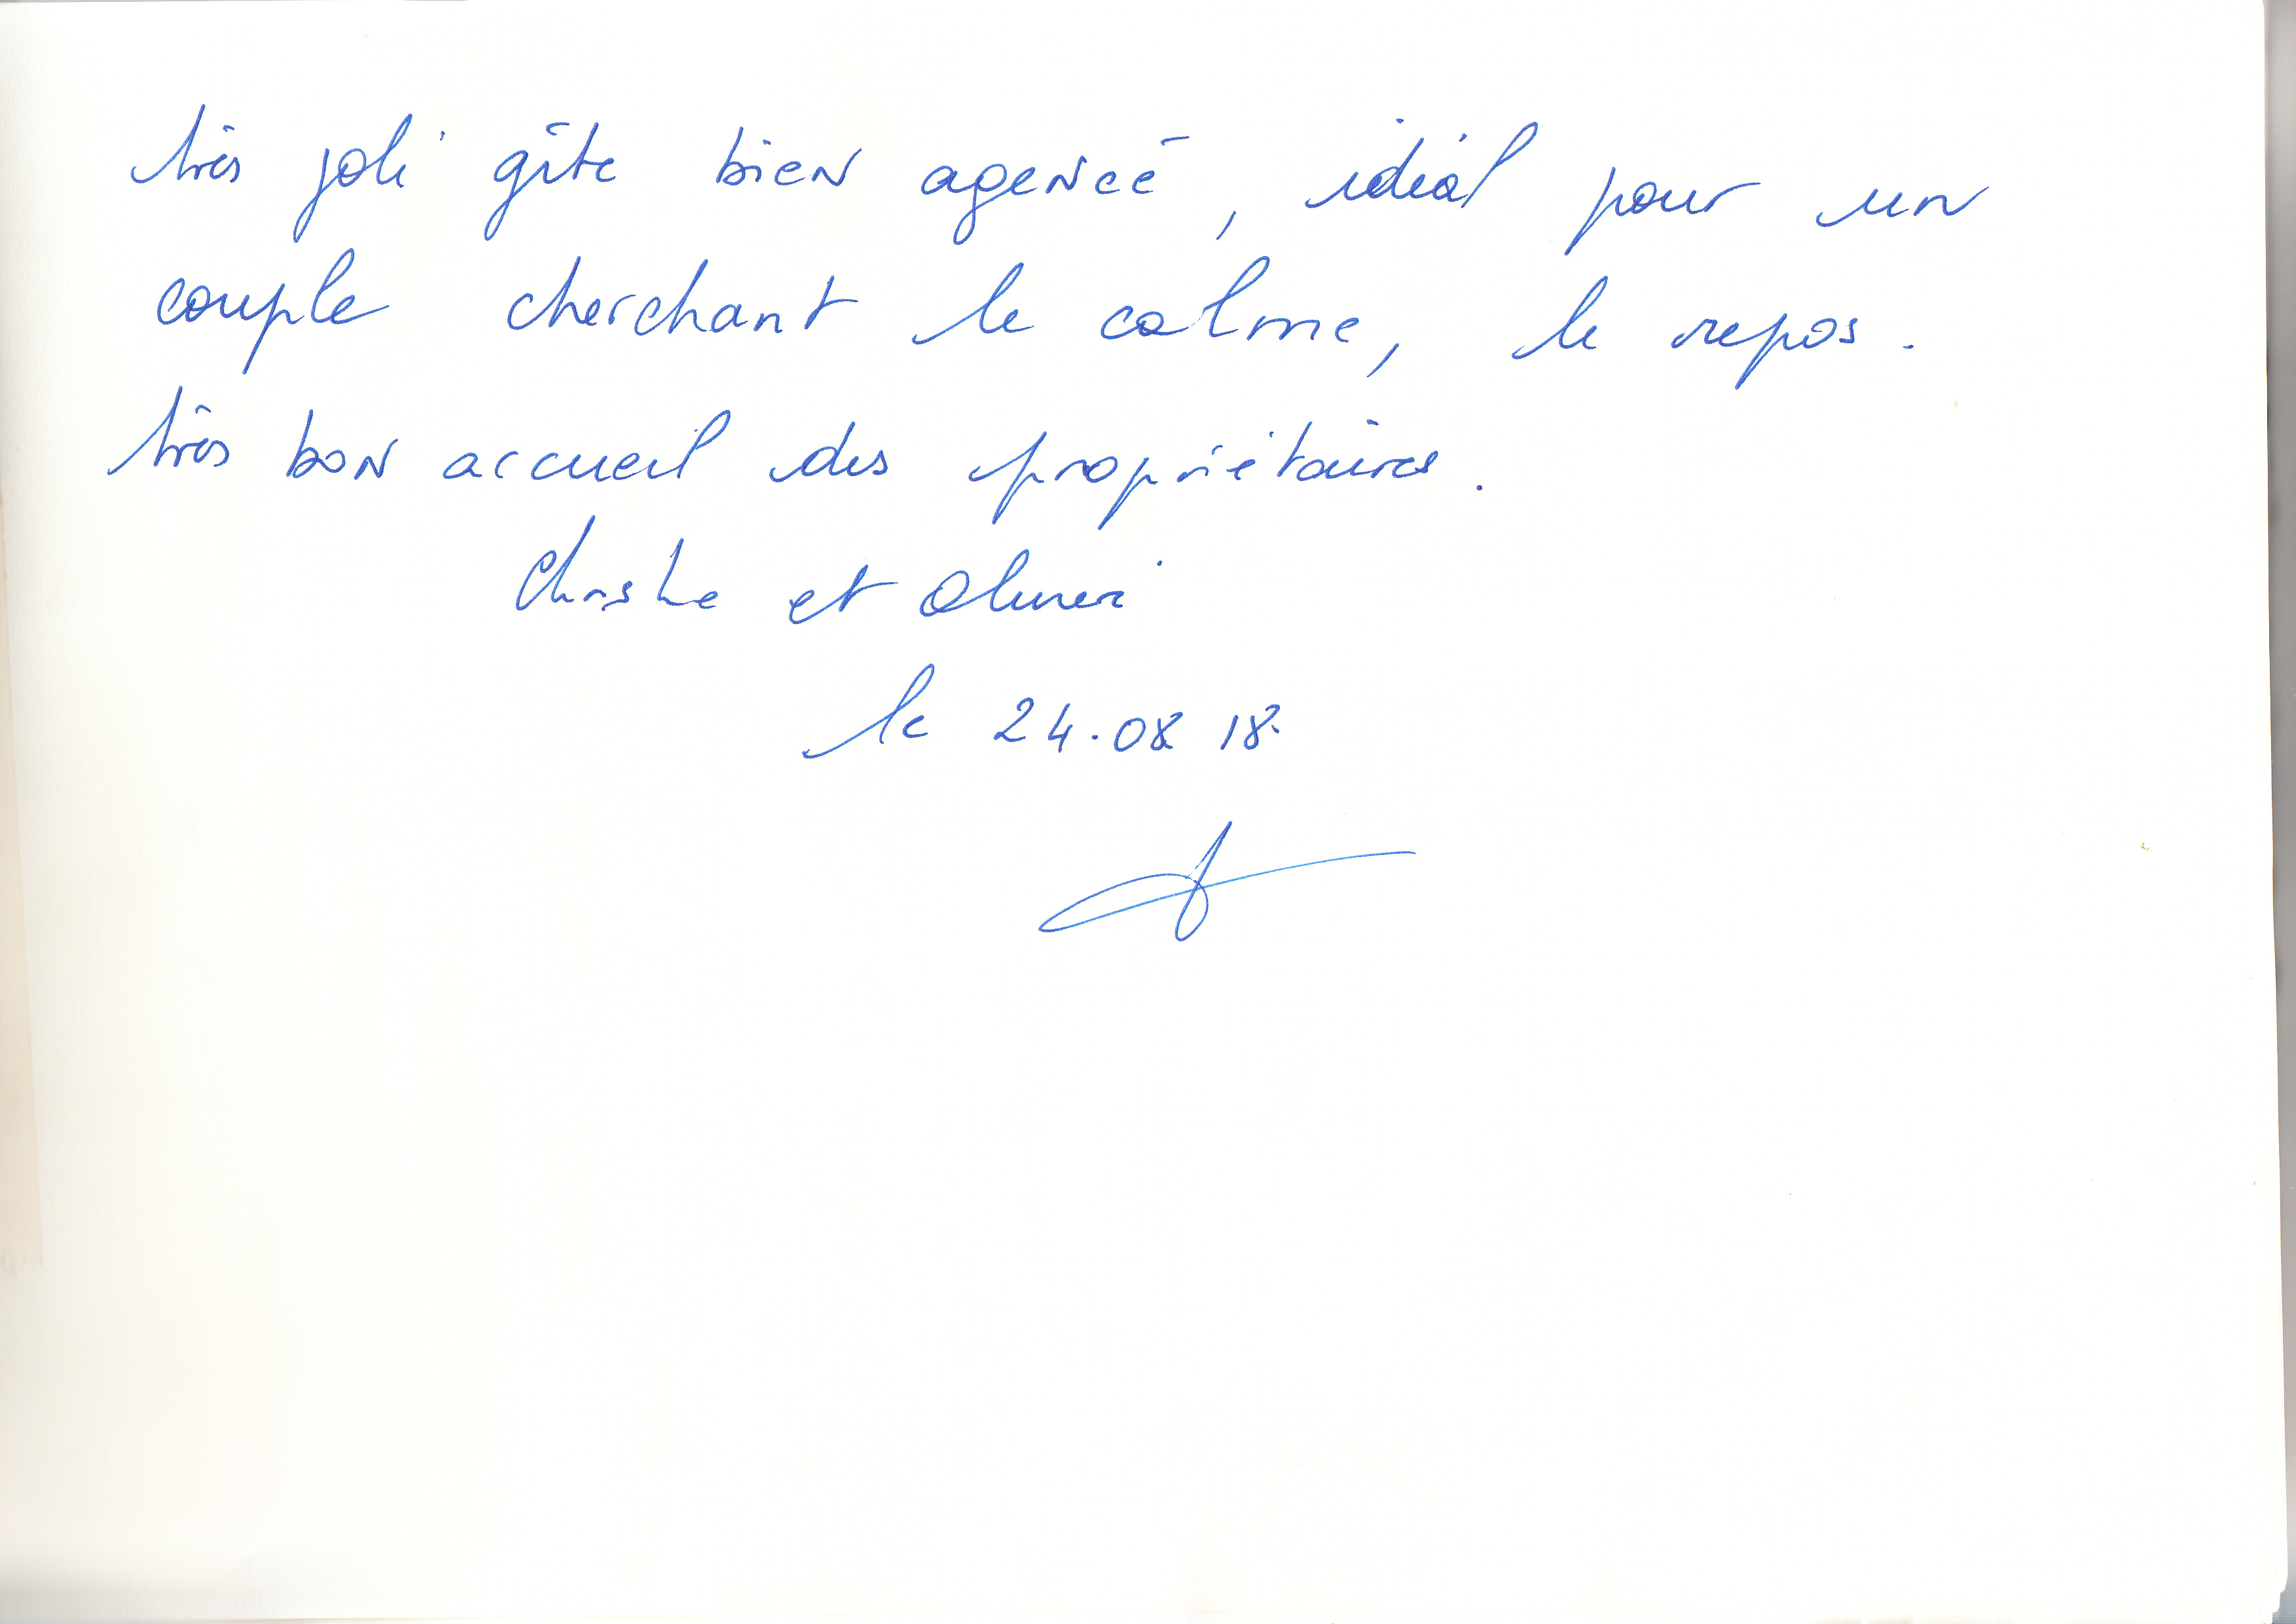 très joli gîte bien agencé, idéal pour un
couple cherchant le calme, le repos.
très bon accueil des propriétaires.
et Olivier
le 24.08 18.